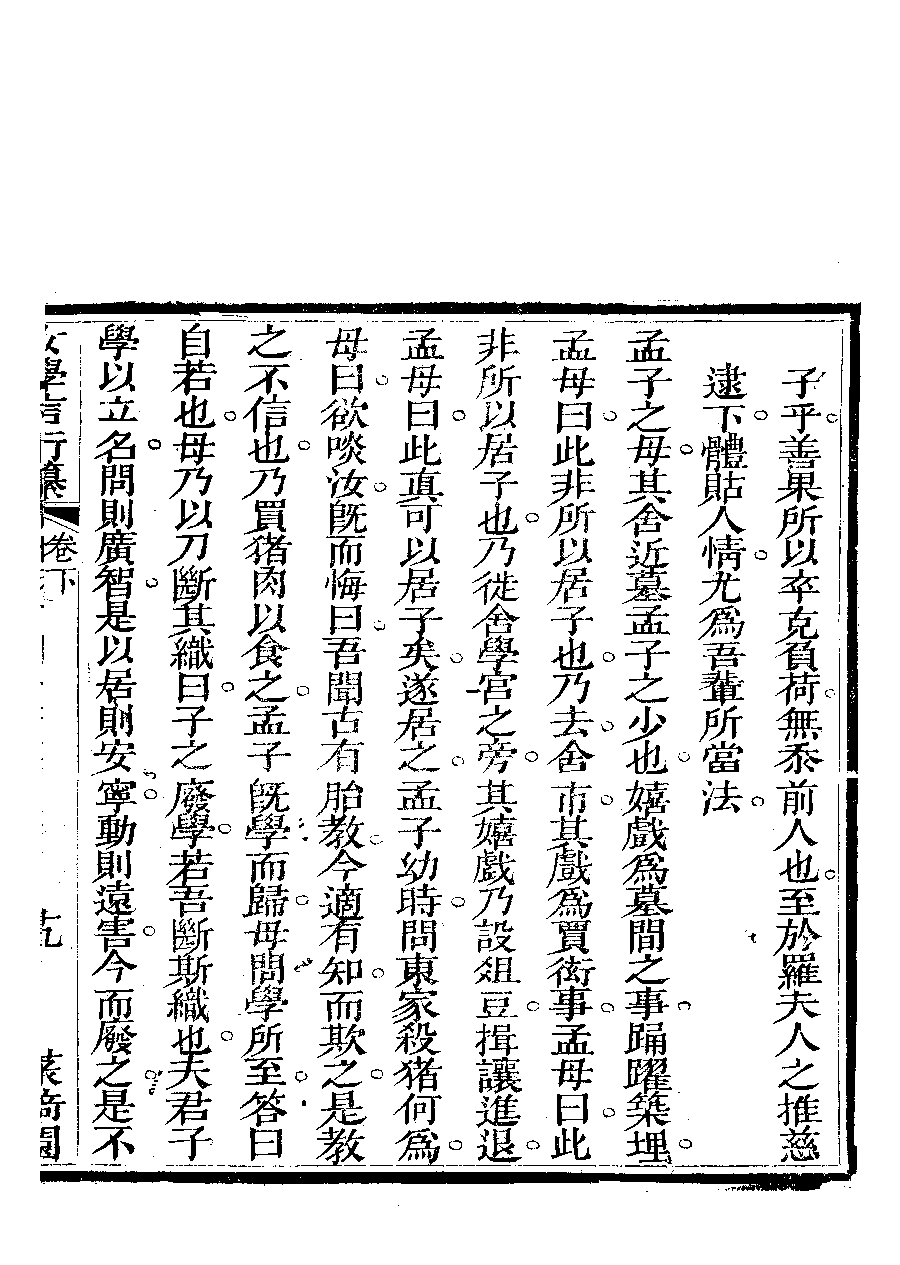 子乎善果所以卒克負荷無忝前人也至於羅夫人之推慈
逮下體貼人情尤爲吾輩所當法
孟子之母其舍近墓孟子之少也嬉戲爲墓間之事踊躍築埋
孟母曰此非所以居子也乃去舍市其戲爲賈衒事孟母曰此
非所以居子也乃徙舍學宮之旁其嬉戲乃設俎豆揖讓進退
孟母曰此眞可以居子矣遂居之孟子幼時問東家殺猪何爲
母曰欲啖汝旣而悔曰吾聞古有胎教今適有知而欺之是教
之不信也乃買猪肉以食之孟子旣學而歸母問學所至答曰
自若也母乃以刀斷其織曰子之廢學若吾斷斯織也夫君子
學以立名問則廣智是以居則安寧動則遠害今而廢之是不
女學言行纂 卷下